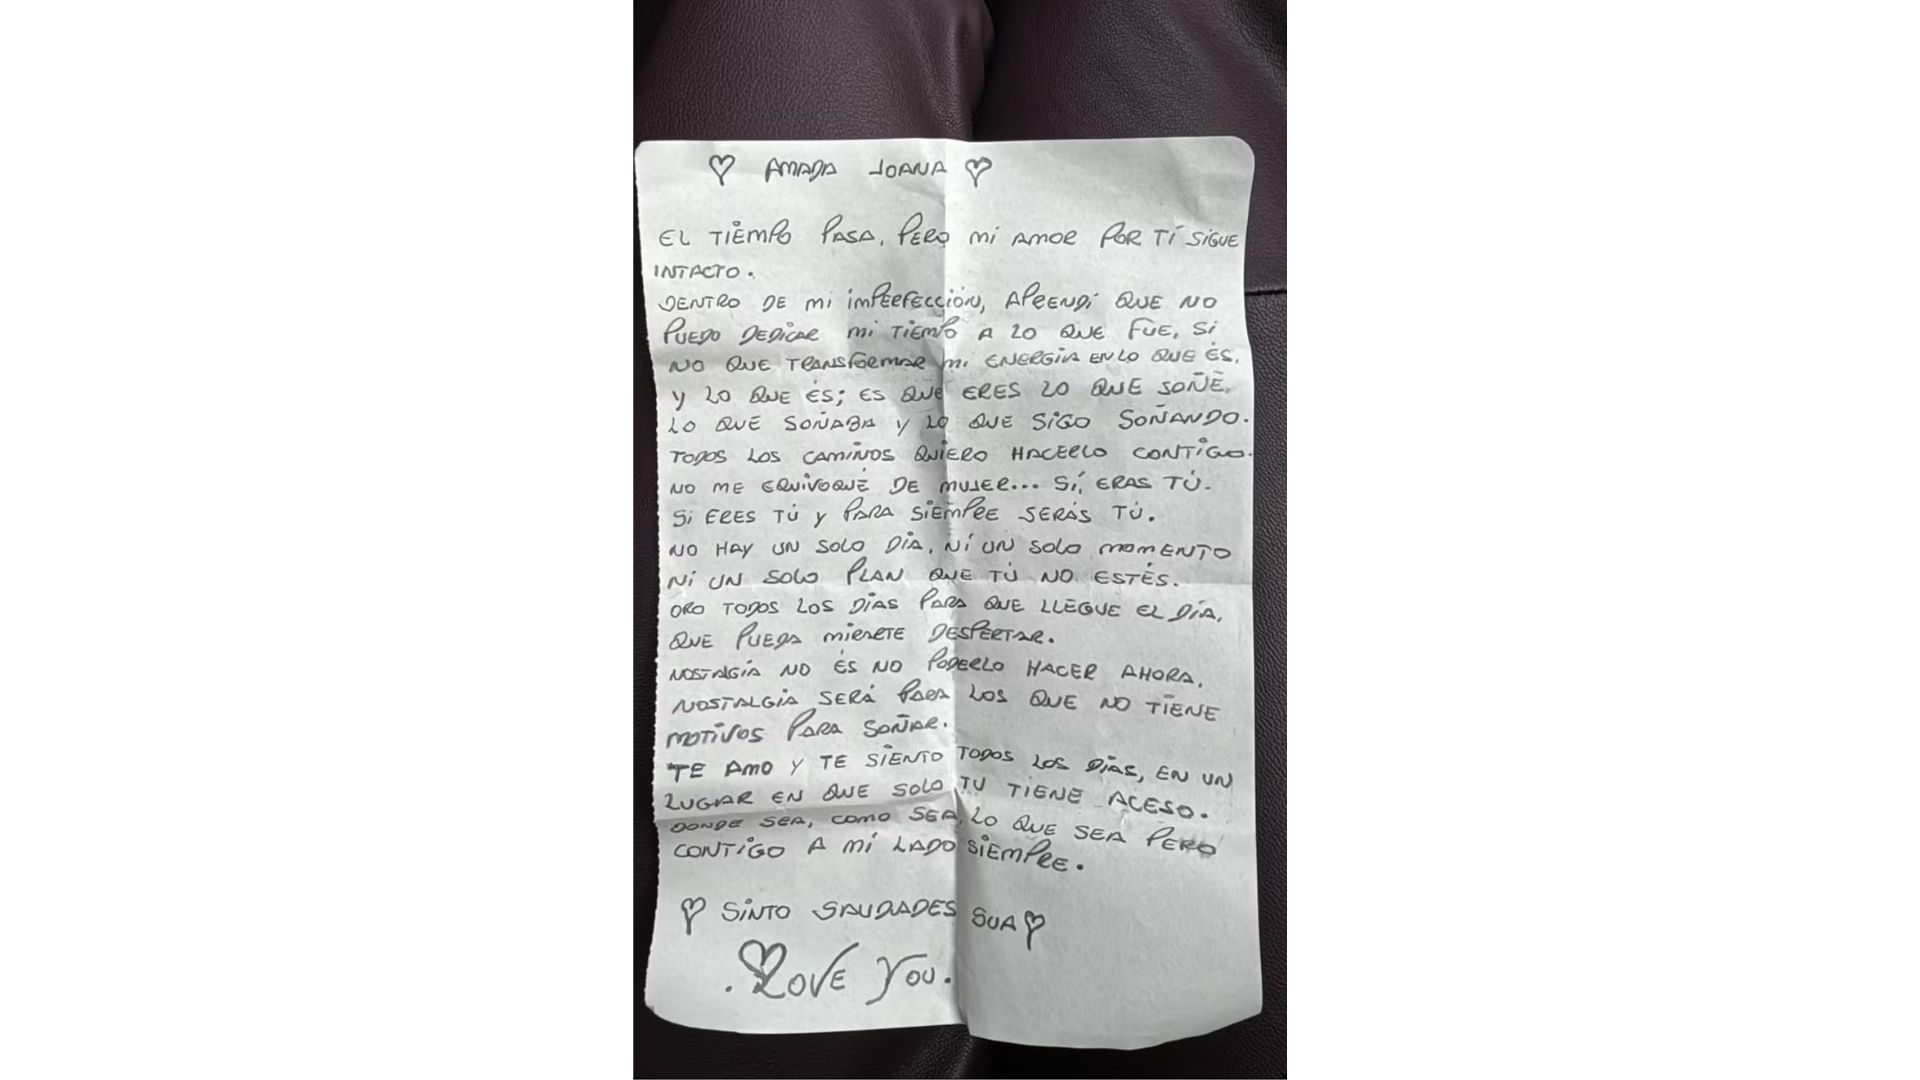 ♡ AMADA JOANA ♡
EL TIEMPO PASA, PERO MI AMOR POR TÍ SIGUE
INTACTO.
DENTRO DE MI IMPERFECCIÓN, APRENDÍ QUE NO
PUEDO DEDICAR MI TIEMPO A LO QUE FUE, SI
NO QUE TRANSFORMAR MI ENERGÍA EN LO QUE ÉS.
Y LO QUE ÉS; ES QUE ERES LO QUE SOÑÉ,
LO QUÉ SOÑABA Y LO QUE SIGO SOÑANDO.
TODOS LOS CAMIÑOS QUIERO HACERLO CONTIGO.
NO ME EQUIVOQUÉ DE MUJER... SÍ, ERAS TÚ.
SI ERES TÚ Y PARA SIEMPRE SERÁS TÚ.
NO HAY UN SOLO DÍA, NÍ UN SOLO MOMENTO
NI UN SOLO PLAN QUE TÚ NO ESTÉS.
ORO TODOS LOS DÍAS PARA QUE LLEGUE EL DÍA,
QUE PUEDA MIRARTE DESPERTAR.
NOSTALGÍA NO ÉS NO PODERLO HACER AHORA,
NOSTALGÍA SERÁ PARA LOS QUE NO TIENE
MOTIVOS PARA SOÑAR.
TE AMO Y TE SIENTO TODOS LOS DÍAS, EN UN
LUGAR EN QUE SOLO TU TIENE ACESO.
DONDE SEA, COMO SEA, LO QUE SEA PERO
CONTIGO A MÍ LADO SIEMPRE.
♡ SINTO SAUDADES SUA ♡
. ♡LOVE YOU.